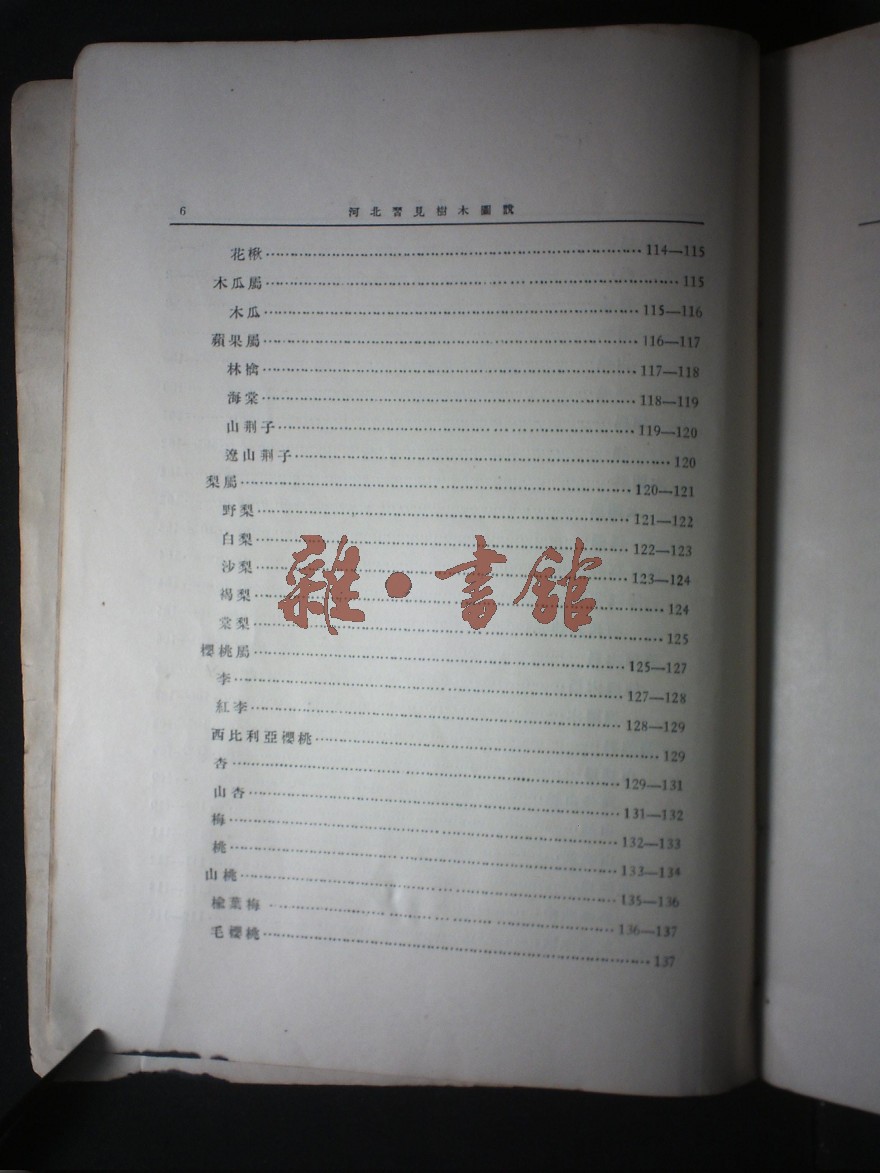 6 河北習見樹木圖說
花楸……114—115
木瓜屬……115
木瓜……115—116
蘋果屬……116—117
林檎……117—118
海棠……118—119
山荆子……119—120
遼山荆子……120
梨屬……120—121
野梨……121—122
白梨……122—123
沙梨……123—124
褐梨……124
棠梨……125
櫻桃屬……125—127
李……127—128
紅李……128—129
西比利亞櫻桃……129
杏……129—131
山杏……131—132
梅……132—133
桃……133—134
山桃……135—136
榆葉梅……136—137
毛櫻桃……137
雜·書館